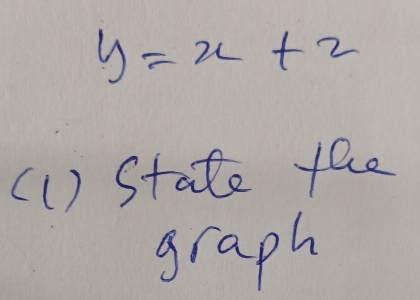 y = x + 2
(1) State the
graph